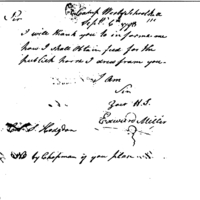 Sir
Camp
Sept. 6th 1778
I will thank you to inform me
how I shall obtain feed for the
publick horse I drew from you.
I Am
Sir
Your H.S.
Edward Miller
S Hodgdon
NB by Chapman if you please